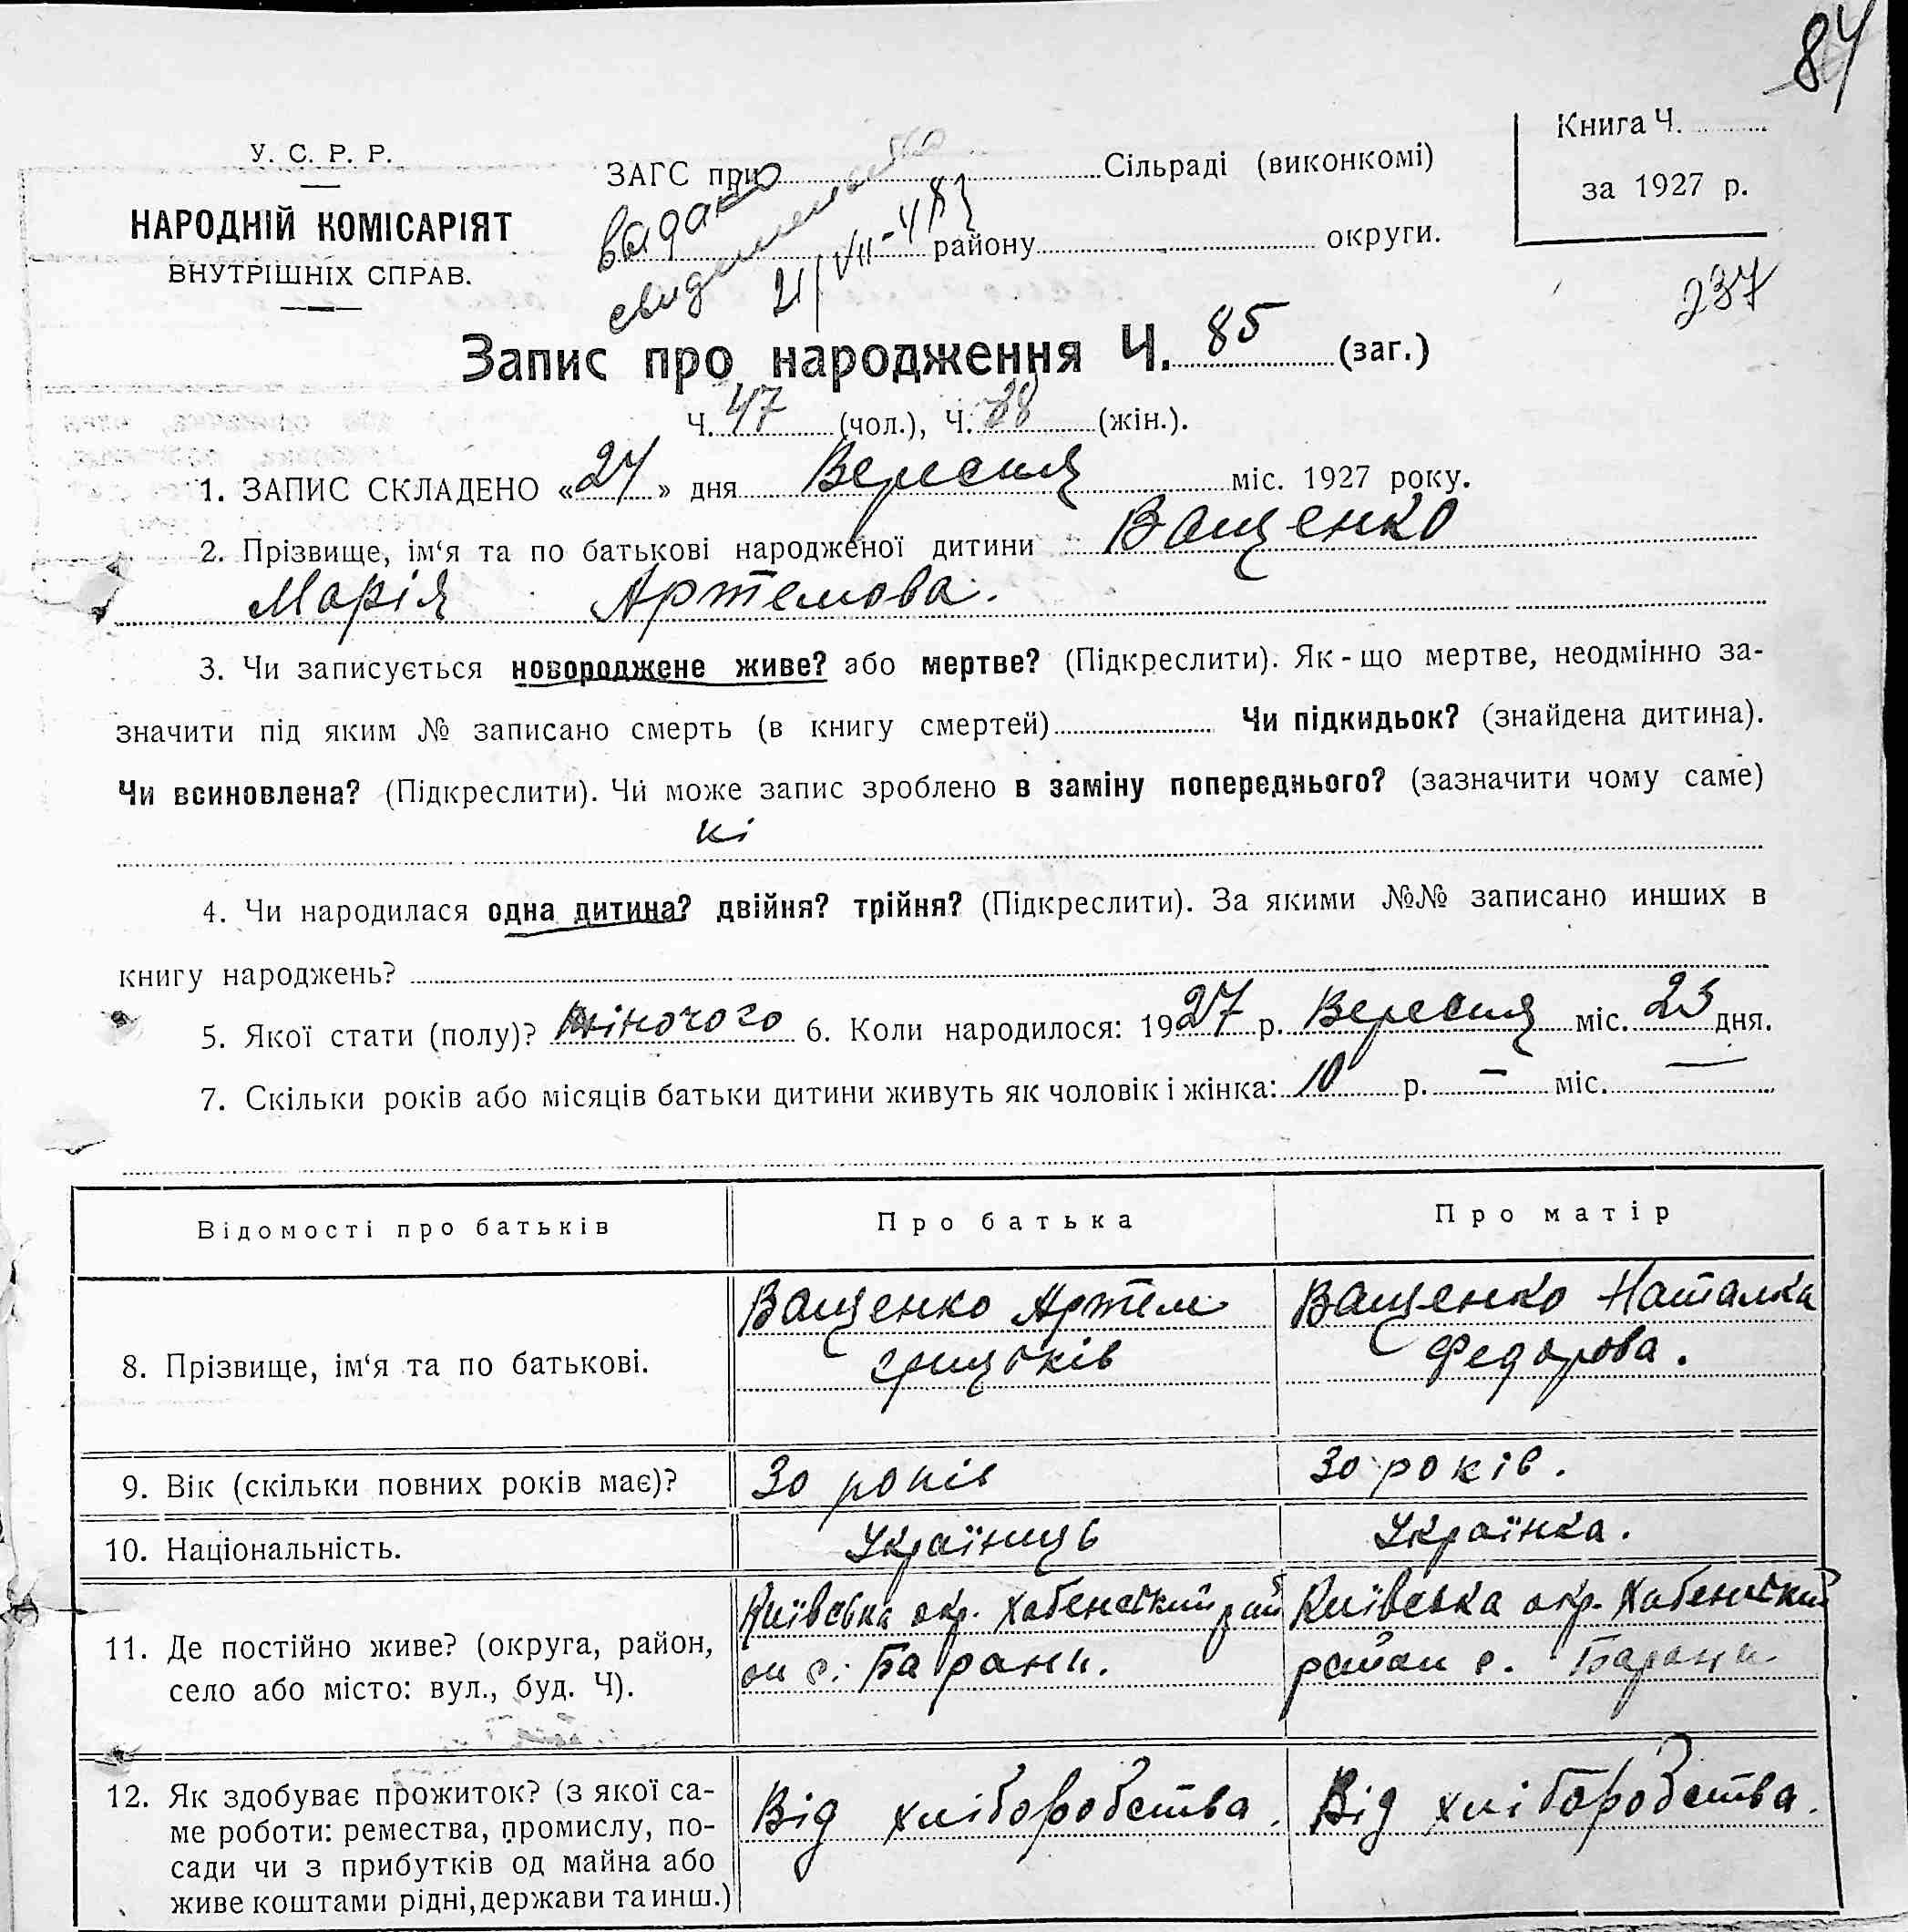 84
У. С. Р. Р.
НАРОДНІЙ КОМІСАРІЯТ
ВНУТРІШНІХ СПРАВ.
ЗАГС при Сільраді (виконкомі)
району округи.
Книга Ч.
за 1927 р.
237
Запис про народження Ч. 85 (заг.)
Ч. 47 (чол.), Ч. 38 (жін.).
1. ЗАПИС СКЛАДЕНО «27» дня Вересня міс. 1927 року.
2. Прізвище, ім‘я та по батькові народженої дитини Ващенко
Марія Артемова.
3. Чи записується новороджене живе? або мертве? (Підкреслити). Як-що мертве, неодмінно за-
значити під яким № записано смерть (в книгу смертей) Чи підкидьок? (знайдена дитина).
Чи всиновлена? (Підкреслити). Чи може запис зроблено в заміну попереднього? (зазначити чому саме)
ні
4. Чи народилася одна дитина? двійня? трійня? (Підкреслити). За якими №№ записано инших в
книгу народжень?
5. Якої стати (полу)? жіночого 6. Коли народилося: 1927 р. Вересня міс. 23 дня.
7. Скільки років або місяців батьки дитини живуть як чоловік і жінка: 10 р. — міс. —
Відомості про батьків Про батька Про матір
8. Прізвище, ім‘я та по батькові.
Ващенко Артем
Грицьків
Ващенко Наталка
Федорова.
9. Вік (скільки повних років має)? 30 років 30 років.
10. Національність. Українць Українка.
11. Де постійно живе? (округа, район,
село або місто: вул., буд. Ч).
Київська окр. Хабенський рай
он с. Барани.
Київська окр. Хабенський
район с. Барани
12. Як здобуває прожиток? (з якої са-
ме роботи: ремества, промислу, по-
сади чи з прибутків од майна або
живе коштами рідні, держави та инш.)
Від хліборобства.
Від хліборобства.